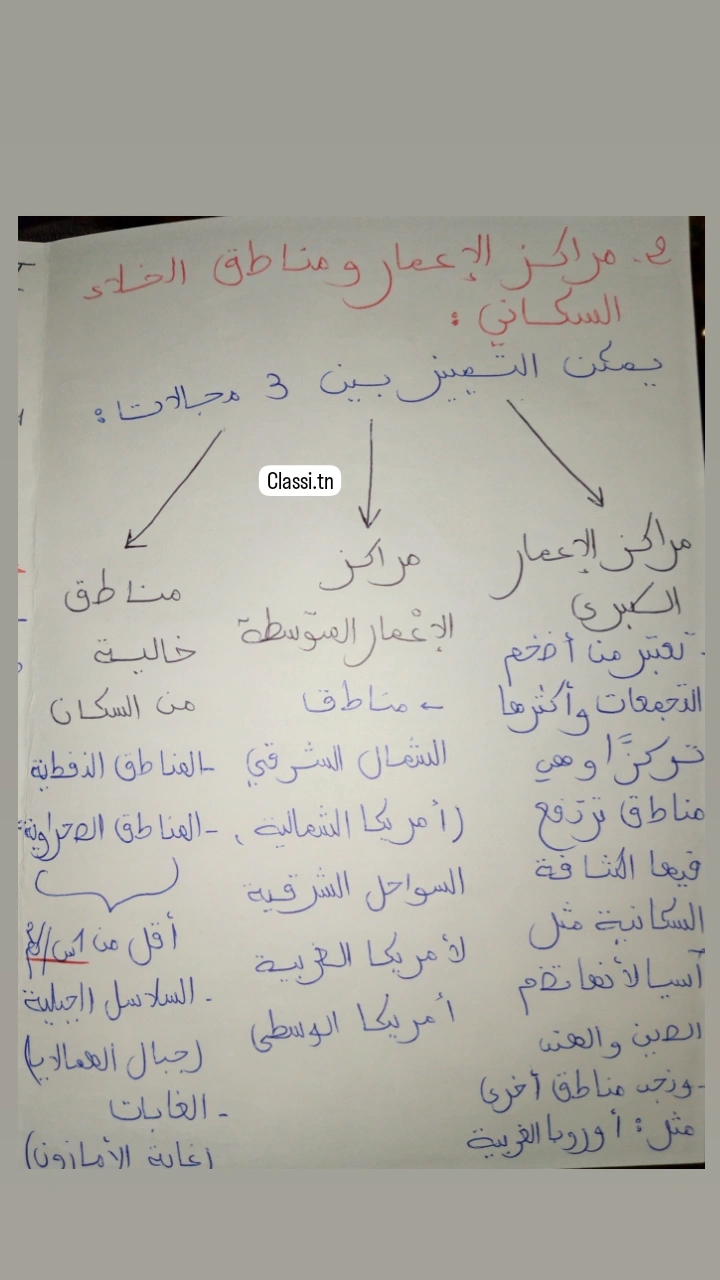 2. مراكز الإعمار ومناطق الخلاء
السكاني :
يمكن التمييز بين 3 مجالات :
Classi.tn
مراكز الإعمار
الكبرى
- تعتبر من أضخم
التجمعات وأكثرها
تركزًا وهي
مناطق ترتفع
فيها الكثافة
السكانية مثل
آسيا لأنها تضم
الصين والهند
- ونجد مناطق أخرى
مثل : أوروبا الغربية
مراكز
الإعمار المتوسطة
← مناطق
الشمال الشرقي
(أمريكا الشمالية ،
السواحل الشرقية
لأمريكا الغربية
أمريكا الوسطى
مناطق
خالية
من السكان
- المناطق النفطية
- المناطق الصحراوية
أقل من 1س/كم
- السلاسل الجبلية
(جبال الهمالايا)
- الغابات
(غابة الأمازون)